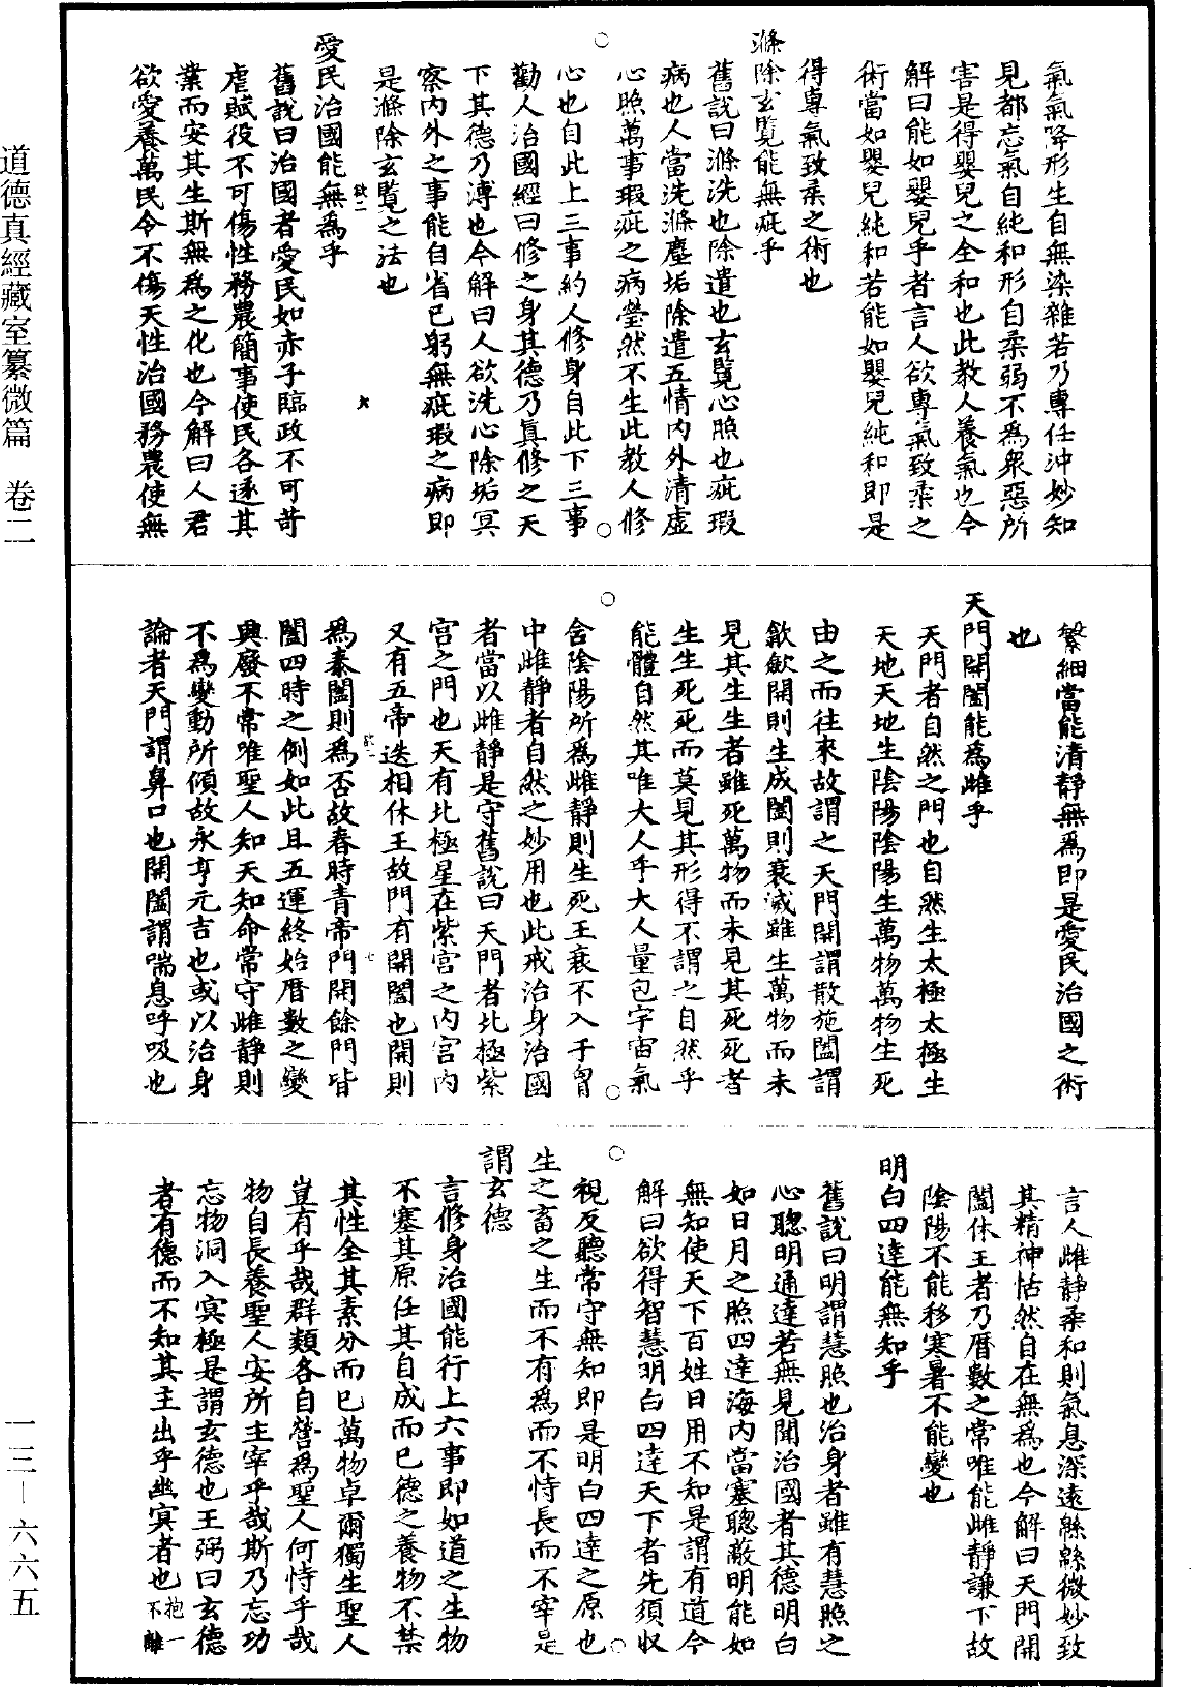 氣氣降形生自無染雜若乃專任沖妙知
見都忘氣自純和形自柔弱不為衆惡所
害是得嬰兒之全和也此教人養氣也今
解曰能如嬰兒乎者言人欲專氣致柔之
術當如嬰兒純和若能如嬰兒純和即是
得專氣致柔之術也
滌除玄覽能無疵乎
舊說曰滌洗也除遣也玄覽心照也疵瑕
病也人當洗滌塵垢除遣五情內外清虛
心照萬事瑕疵之病瑩然不生此教人修
心也自此上三事約人修身自此下三事
勸人治國經曰修之身其德乃真修之天
下其德乃溥也今解曰人欲洗心除垢冥
察內外之事能自省已躬無疵瑕之病即
是滌除玄覽之法也
愛民治國能無為乎
舊說曰治國者愛民如赤子臨政不可苛
虐賦役不可傷性務農簡事使民各遂其
業而安其生斯無為之化也今解曰人君
欲愛養萬民令不傷天性治國務農使無
繁細當能清靜無為即是愛民治國之術
也
天門開闔能為雌乎
天門者自然之門也自然生太極太極生
天地天地生陰陽陰陽生萬物萬物生死
由之而往來故謂之天門開謂散施闔謂
歙斂開則生成闔則衰滅雖生萬物而未
見其生生者雖死萬物而未見其死死者
生生死死而莫見其形得不謂之自然乎
能體自然其唯大人乎大人量包宇宙氣
含陰陽所為雌靜則生死王衰不入于胷
中雌靜者自然之妙用也此戒治身治國
者當以雌靜是守舊說曰天門者北極紫
宮之門也天有北極星在紫宮之內宮內
又有五帝迭相休王故門有開闔也開則
為泰闔則為否故春時青帝門開餘門皆
闔四時之例如此且五運終始曆數之變
興廢不常唯聖人知天知命常守雌靜則
不為變動所傾故永亨元吉也或以治身
論者天門謂鼻口也開闔謂喘息呼吸也
言人雌靜柔和則氣息深遠緜緜微妙致
其精神怗然自在無為也今解曰天門開
闔休王者乃曆數之常唯能雌靜謙下故
陰陽不能移寒暑不能變也
明白四達能無知乎
舊說曰明謂慧照也治身者雖有慧照之
心聰明通達若無見聞治國者其德明白
如日月之照四達海內當塞聰蔽明能如
無知使天下百姓日用不知是謂有道今
解曰欲得智慧明白四達天下者先須收
視反聽常守無知即是明白四達之原也
生之畜之生而不有為而不恃長而不宰是
謂玄德
言修身治國能行上六事即如道之生物
不塞其原任其自成而已德之養物不禁
其性全其素分而已萬物卓爾獨生聖人
豈有乎哉群類各自營為聖人何恃乎哉
物自長養聖人安所主宰乎哉斯乃忘功
忘物洞入冥極是謂玄德也王弼曰玄德
者有德而不知其主出乎幽冥者也抱一不離
道德真經藏室纂微篇 卷二
一三—六六五